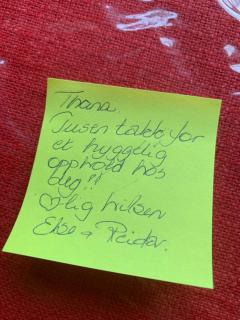 Thana,
Tusen takk for
et hyggelig
opphold hos
deg!!
♡lig hilsen
Else & Reidar.